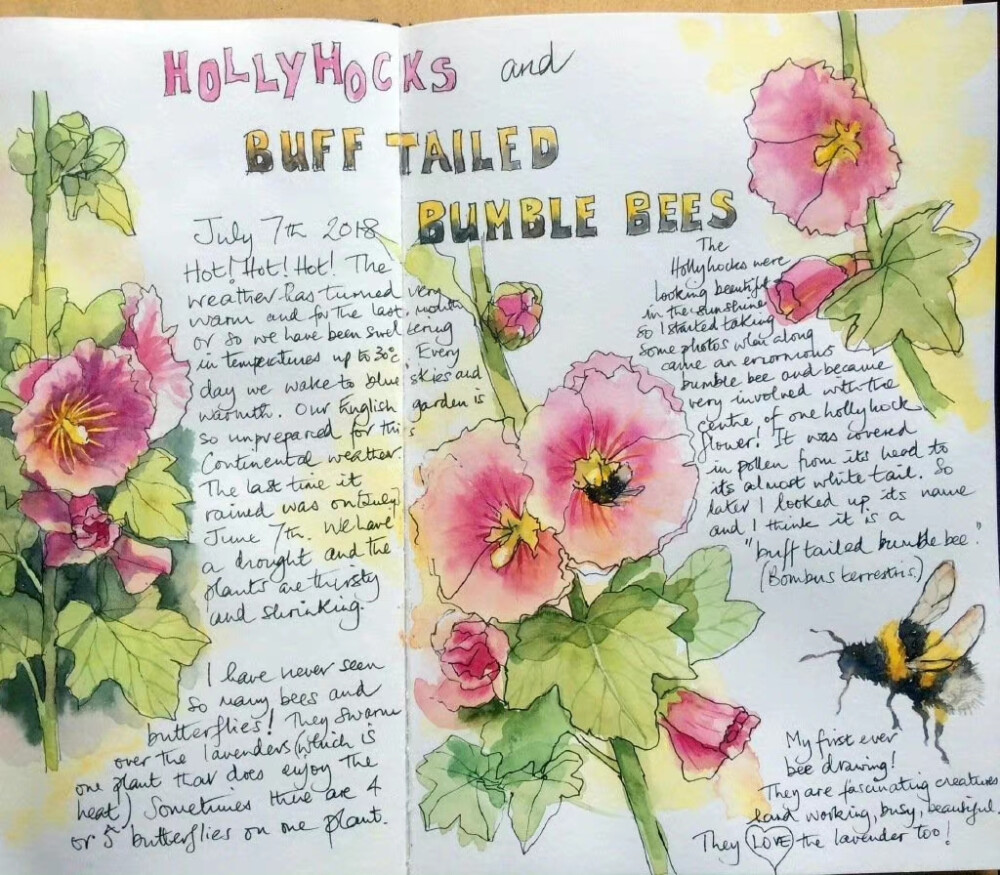 HOLLYHOCKS and
BUFF TAILED
BUMBLE BEES
July 7th 2018
Hot! Hot! Hot! The
weather has turned very
warm and for the last month
or so we have been sweltering
in temperatures up to 30°c. Every
day we wake to blue skies and
warmth. Our English garden is
so unprepared for this
Continental weather.
The last time it
rained was on (July)
June 7th. We have
a drought and the
plants are thirsty
and shrinking.
I have never seen
so many bees and
butterflies! They swarm
over the lavenders (which is
one plant that does enjoy the
heat) Sometimes there are 4
or 5 butterflies on one plant.
The
Hollyhocks were
looking beautiful
in the sunshine
so I started taking
some photos when along
came an enormous
bumble bee and became
very involved with the
centre of one hollyhock
flower! It was covered
in pollen from its head to
its almost white tail. So
later I looked up its name
and I think it is a
"buff tailed bumble bee."
(Bombus terrestris.)
My first ever
bee drawing!
They are fascinating creatures
hard working, busy, beautiful.
They LOVE the lavender too!